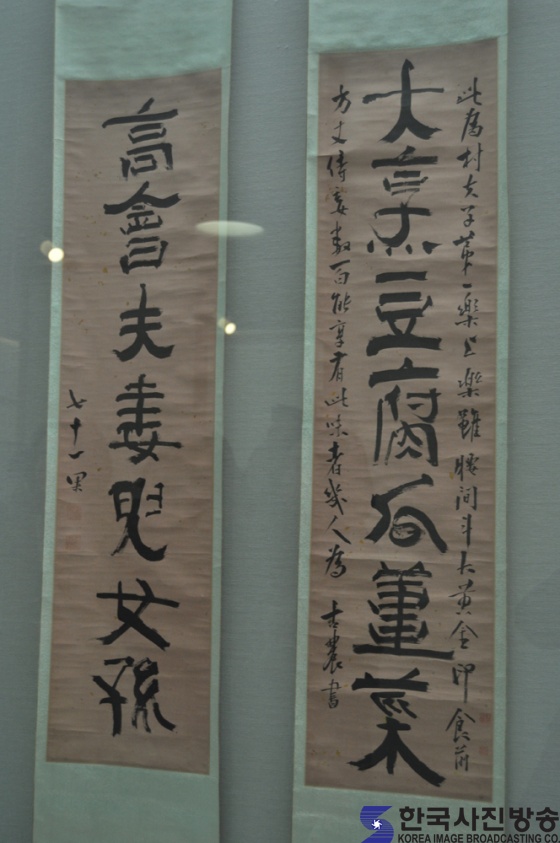 此爲村夫子第一樂上樂雖腰間斗大黃金印食前
大烹豆腐瓜薑菜
方丈侍妾數百能享有此味者幾人爲 古農書
高會夫妻兒女孫
七十一果
한국사진방송
KOREA IMAGE BROADCASTING CO.